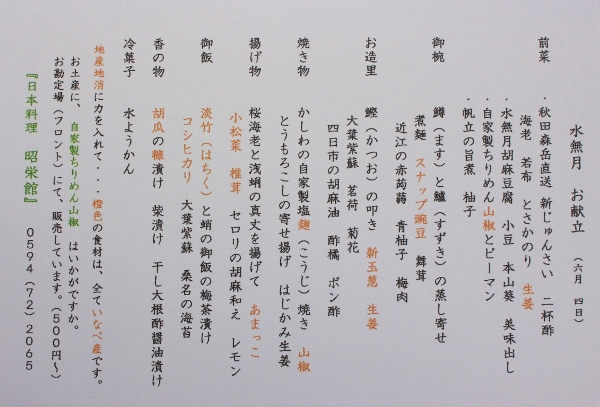 水無月 お献立 (六月 四日)
前菜 ・秋田森岳直送 新じゅんさい 二杯酢
海老 若布 とさかのり 生姜
・水無月胡麻豆腐 小豆 本山葵 美味出し
・自家製ちりめん山椒とピーマン
・帆立の旨煮 柚子
御椀 鱒(ます)と鱸(すずき)の蒸し寄せ
煮麺 スナップ豌豆 舞茸
近江の赤蒟蒻 青柚子 梅肉
お造里 鰹(かつお)の叩き 新玉葱 生姜
大葉紫蘇 茗荷 菊花
四日市の胡麻油 酢橘 ポン酢
焼き物 かしわの自家製塩麹(こうじ)焼き 山椒
とうもろこしの寄せ揚げ はじかみ生姜
揚げ物 桜海老と浅蜊の真丈を揚げて あまっこ
小松菜 椎茸 セロリの胡麻和え レモン
御飯 淡竹(はちく)と蛸の御飯の梅茶漬け
コシヒカリ 大葉紫蘇 桑名の海苔
香の物 胡瓜の糠漬け 柴漬け 干し大根酢醤油漬け
冷菓子 水ようかん
地産地消に力を入れて・・・橙色の食材は、全ていなべ産です。
お土産に、 自家製ちりめん山椒 はいかがですか。
お勘定場(フロント)にて、販売しています。(500円~)
『日本料理 昭栄館』 0594(72)2065